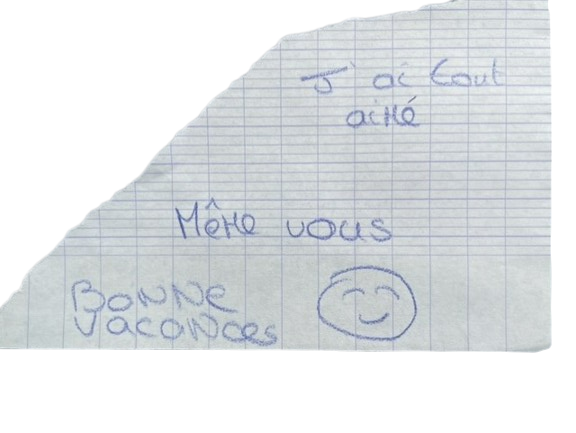 J'ai tout
aimé
Même vous
Bonne
vacances